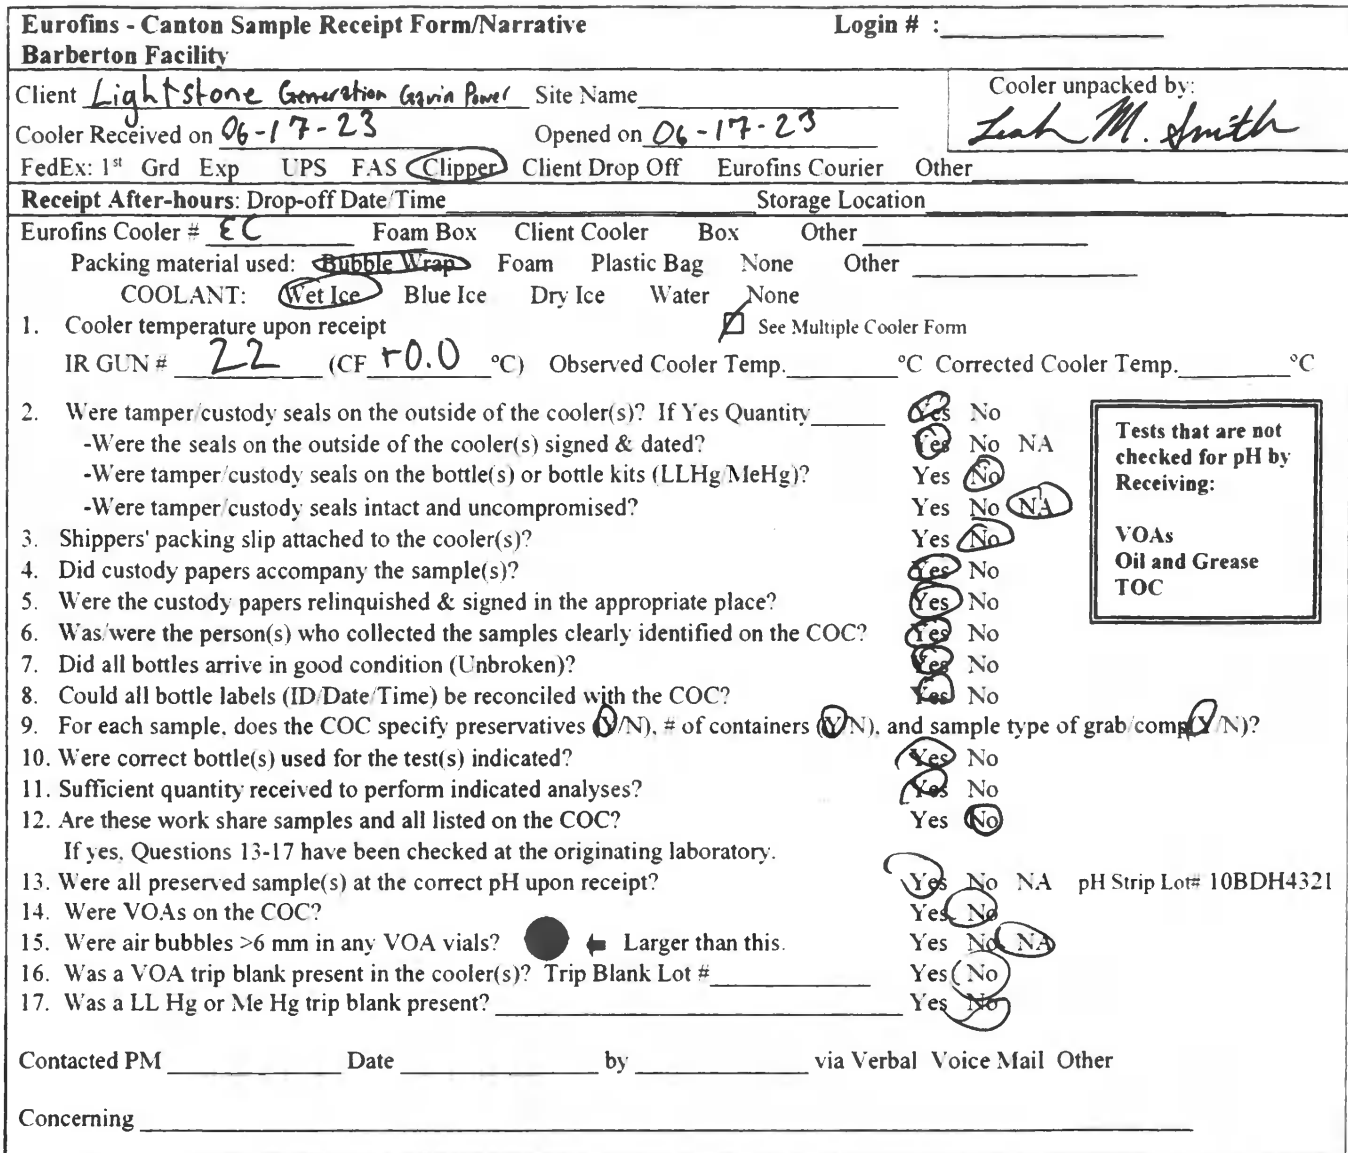 Eurofins - Canton Sample Receipt Form/Narrative Login # :
Barberton Facility
Client Lightstone Generation Gavin Power Site Name
Cooler unpacked by:
Cooler Received on 06-17-23 Opened on 06-17-23
Leah M. Smith
FedEx: 1st Grd Exp UPS FAS Clipper Client Drop Off Eurofins Courier Other
Receipt After-hours: Drop-off Date/Time Storage Location
Eurofins Cooler # EC Foam Box Client Cooler Box Other
Packing material used: Bubble Wrap Foam Plastic Bag None Other
COOLANT: Wet Ice Blue Ice Dry Ice Water None
1. Cooler temperature upon receipt See Multiple Cooler Form
IR GUN # 22 (CF +0.0 °C) Observed Cooler Temp. °C Corrected Cooler Temp. °C
2. Were tamper/custody seals on the outside of the cooler(s)? If Yes Quantity Yes No
-Were the seals on the outside of the cooler(s) signed & dated? Yes No NA
-Were tamper/custody seals on the bottle(s) or bottle kits (LLHg/MeHg)? Yes No
-Were tamper/custody seals intact and uncompromised? Yes No NA
3. Shippers' packing slip attached to the cooler(s)? Yes No
4. Did custody papers accompany the sample(s)? Yes No
5. Were the custody papers relinquished & signed in the appropriate place? Yes No
6. Was/were the person(s) who collected the samples clearly identified on the COC? Yes No
7. Did all bottles arrive in good condition (Unbroken)? Yes No
8. Could all bottle labels (ID/Date/Time) be reconciled with the COC? Yes No
Tests that are not
checked for pH by
Receiving:
VOAs
Oil and Grease
TOC
9. For each sample, does the COC specify preservatives (Y/N), # of containers (Y/N), and sample type of grab/comp(Y/N)?
10. Were correct bottle(s) used for the test(s) indicated? Yes No
11. Sufficient quantity received to perform indicated analyses? Yes No
12. Are these work share samples and all listed on the COC? Yes No
If yes, Questions 13-17 have been checked at the originating laboratory.
13. Were all preserved sample(s) at the correct pH upon receipt? Yes No NA pH Strip Lot# 10BDH4321
14. Were VOAs on the COC? Yes No
15. Were air bubbles >6 mm in any VOA vials? Larger than this. Yes No NA
16. Was a VOA trip blank present in the cooler(s)? Trip Blank Lot # Yes No
17. Was a LL Hg or Me Hg trip blank present? Yes No
Contacted PM Date by via Verbal Voice Mail Other
Concerning